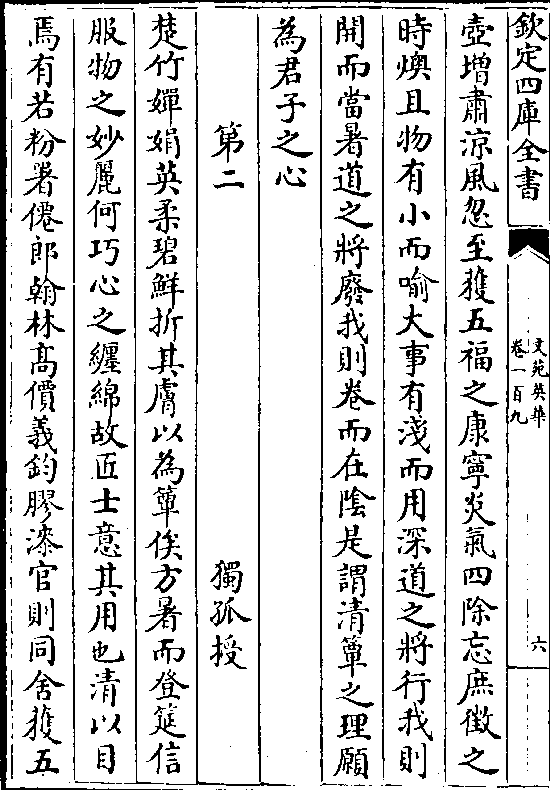 欽定四庫全書
文苑英華
卷一百九
六
壺增肅涼風忽至獲五福之康寧炎氣四除忘庶徵之
時燠且物有小而喻大事有淺而用深道之將行我則
開而當暑道之將廢我則卷而在陰是謂清簟之理願
為君子之心
第二
獨孤授
楚竹嬋娟英柔碧鮮折其膚以為簟俟方暑而登筵信
服物之妙麗何巧心之纏綿故匠士意其用也清以目
焉有若粉署僊郎翰林髙價義鈞膠漆官則同舍獲五